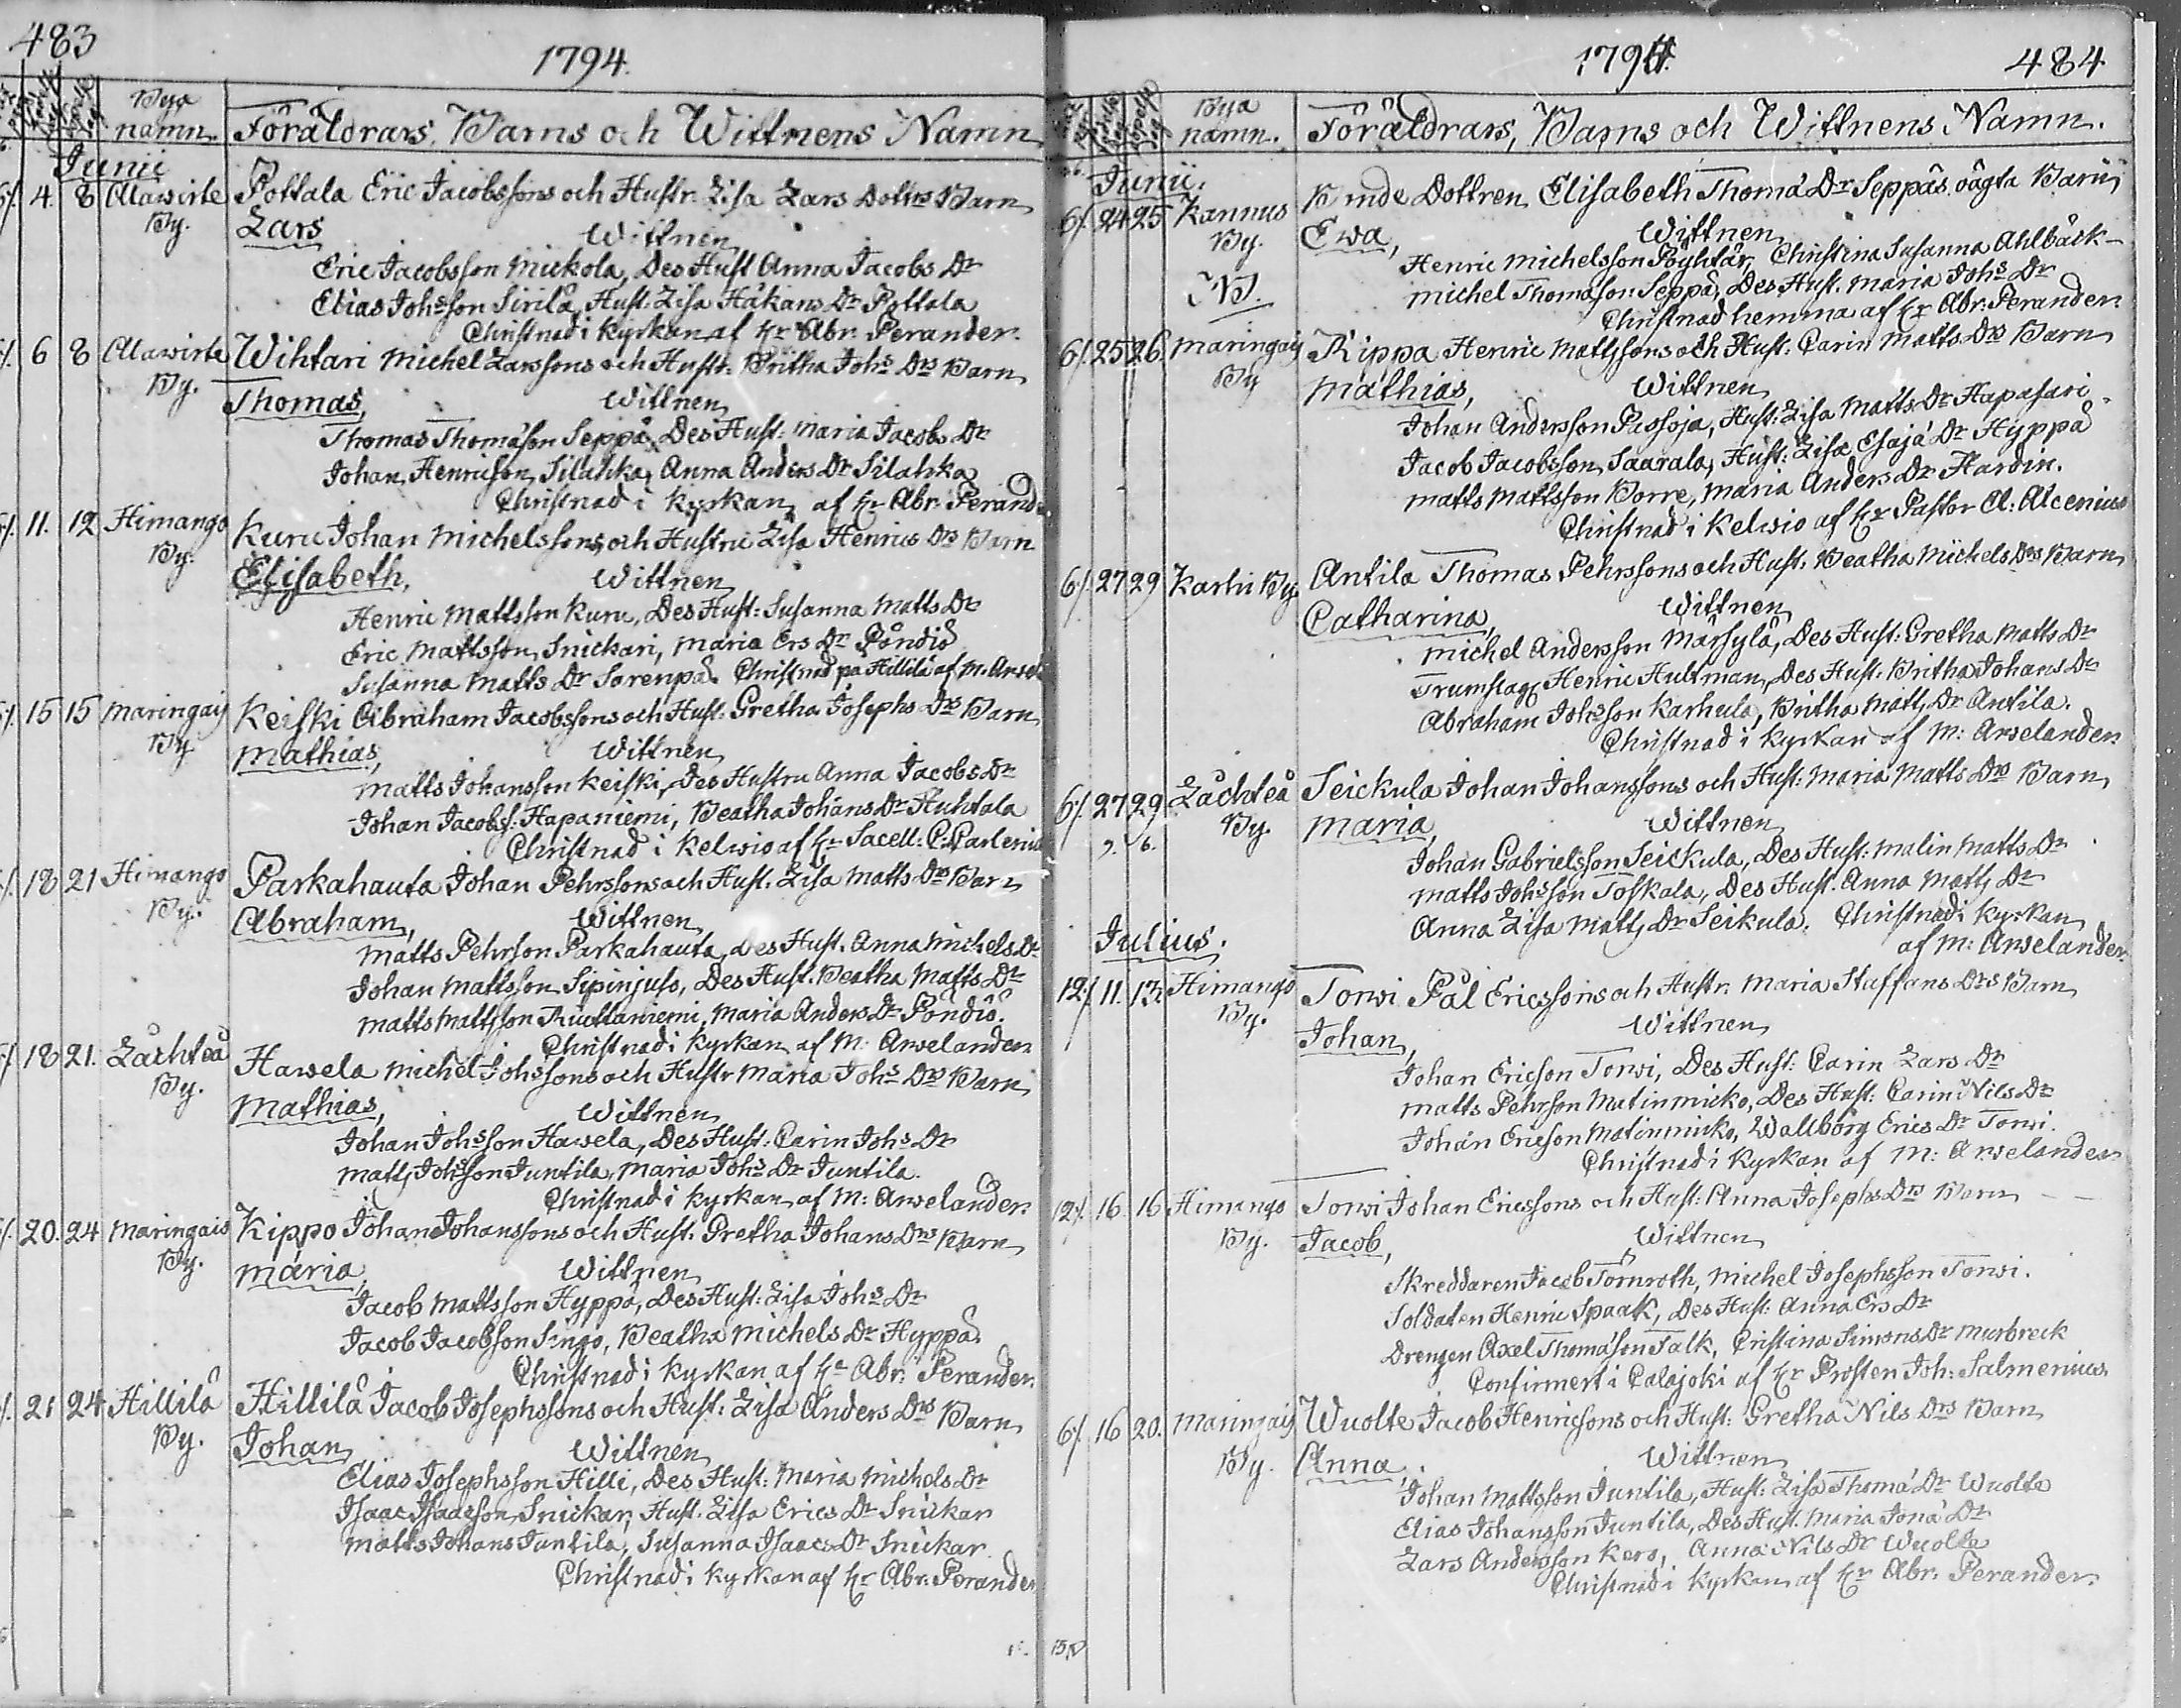 483
1794.
Bya
namn.
Föräldrars, Barns och Wittnens Namn
Junii
4 8 Alawirte Pottala Eric Jacobssons och Hustr. Lisa Lars Dotters Barn
By. Lars Wittnen
Eric Jacobsson Mickola, Des Hust Anna Jacobs Dr
Elias Johsson Sirilä, Hust: Lisa Håkans Dr Pottala
Christnad i kyrkan af Hr Abr. Perander.
6 8 Alawirte Wihtari Michel Larssons och Hustr: Britha Johs Drs Barn
By. Thomas, Wittnen
Thomas Thomäson Seppä, Des Hust: Maria Jacobs Dr
Johan Henricson Silahka, Anna Anders Dr Silahka
Christnad i kyrkan af Hr Abr. Perand
11. 12 Himango Kuru Johan Michelssons och Hustru Lisa Henrics Drs Barn
By. Elisabeth, Wittnen
Henric Mattsson Kuru, Des Hust: Susanna Matts Dr
Eric Mattsson Snickari, Maria Ers Dr Pöndiö
Susanna Matts Dr Sorenpä. Christnad på Hillilä af M. Arvel
15 15 Maringais Keiski Abraham Jacobssons och Hust. Gretha Josephs Drs Barn
By Mathias, Wittnen
Matts Johansson Keiski, Des Hustru Anna Jacobs Dr
Johan Jacobss: Hapaniemi, Beatha Johans Dr Huhtala
Christnad i Kelwio af Hr Sacell: C: Carleniu
18 21 Himango Parkahauta Johan Pehrssons och Hust. Lisa Matts Drs Barn
By. Abraham, Wittnen
Matts Pehrson Parkahauta, Des Hust. Anna Michels Dr
Johan Mattsson Sipinjuso, Des Hust. Beatha Matts Dr
Matts Mattsson Ruottaniemi, Maria Anders Dr Pöndiö.
Christnad i kyrkan af M. Arvelander
18 21. Lächteä Hawela Michel Johssons och Hustr Maria Johs Drs Barn
By. Mathias, Wittnen
Johan Johsson Hawela, Des Hust: Carin Johs Dr
Matts Johsson Juntila, Maria Johs Dr Juntila.
Christnad i kyrkan af M: Arvelander.
20. 24 Maringais Kippo Johan Johanssons och Hust. Gretha Johans Drs Barn
By. Maria, Wittnen
Jacob Mattsson Hyppä, Des Hust: Lisa Johs Dr
Jacob Jacobson Singo, Beatha Michels Dr Hyppä.
Christnad i kyrkan af Hr Abr. Perander.
21 24 Hillilä Hillilä Jacob Josephssons och Hust: Lisa Anders Drs Barn
By. Johan Wittnen
Elias Josephsson Hilli, Des Hust: Maria Michels Dr
Isaac Isaacsson Snickar, Hust. Lisa Erics Dr Snickar
Matts Johans Juntila, Susanna Isaacs Dr Snickar
Christnad i kyrkan af Hr Abr. Perander
1794. 484
Bya
namn.
Föräldrars, Barns och Wittnens Namn.
Junii.
6/. 24 25 Kannus Dottren Elisabeth Thomä Dr Seppäs oägta Barn
By. Ewa, Wittnen
Henric Michelsson Pöyhtär, Christina Susanna Ahlbäck
Michel Thomäson Seppä, Des Hust. Maria Johs Dr
Christnad hemma af Hr Abr. Perander.
6/. 25 26. Maringais Rippa Henric Mattssons och Hust: Carin Matts Drs Barn
By Mathias, Wittnen
Johan Andersson Passoja, Hust: Lisa Matts Dr Hapasari
Jacob Jacobsson Saarala, Hust: Lisa Esajä Dr Hyppä
Matts Mattsson Borre, Maria Anders Dr Hardin.
Christnad i Kelwio af Hr Pastor A: Alcenius
6/. 27 29 Karhi By. Antila Thomas Pehrssons och Hust. Beatha Michels Drs Barn
Catharina, Wittnen
Michel Andersson Märsylä, Des Hust: Gretha Matts Dr
Trumslag. Henric Hultman, Des Hust. Britha Johans Dr
Abraham Johsson Karhula, Britha Matts Dr Antila.
Christnad i kyrkan af M: Arvelander
6/. 27 29. Lächteä Seickula Johan Johanssons och Hust: Maria Matts Drs Barn
By. Maria, Wittnen
Johan Gabrielsson Seickula, Des Hust: Malin Matts Dr
Matts Johsson Toskala, Des Hust. Anna Matts Dr
Anna Lisa Matts Dr Seikula. Christnad i kyrkan
af M: Arvelander.
Julius.
12/. 11. 13. Himango Torvi Pål Ericssons och Hustr. Maria Staffans Drs Barn
By. Johan, Wittnen
Johan Ericson Torvi, Des Hust: Carin Lars Dr
Matts Pehrson Matinmicko, Des Hust: Carin Nils Dr
Johan Ericson Matinmicko, Wallborg Erics Dr Torvi.
Christnad i kyrkan af M: Arvelander
12/. 16 16 Himango Torvi Johan Ericssons och Hust: Anna Josephs Drs Barn
By. Jacob, Wittnen
Skreddaren Jacob Törnroth, Michel Josephsson Torvi.
Soldaten Henric Spaak, Des Hust: Anna Ers Dr
Drengen Axel Thomäson Falk, Cristina Simons Dr Murbreck
Confirmert i Calajoki af Hr Prosten Joh: Salmenius
6/. 16 20. Maringais Wuolte Jacob Henricsons och Hust: Gretha Nils Drs Barn
By. Anna, Wittnen
Johan Mattsson Juntila, Hust: Lisa Thomä Dr Wuolte
Elias Johansson Juntila, Des Hust. Maria Jonä Dr
Lars Andersson Kero, Anna Nils Dr Wuolte
Christnad i kyrkan af Hr Abr. Perander.